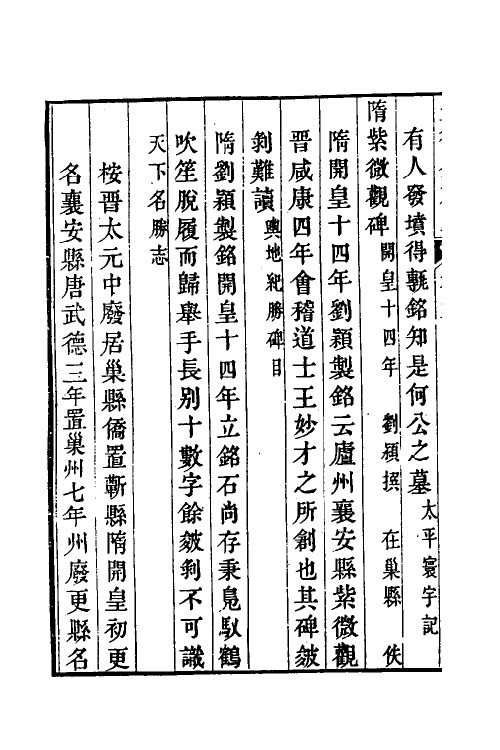 有人發墳得甎銘知是何公之墓太平寰宇記
隋紫微觀碑開皇十四年　劉穎撰　在巢縣　佚
隋開皇十四年劉穎製銘云廬州襄安縣紫微觀
晉咸康四年會稽道士王妙才之所創也其碑皴
剝難讀輿地紀勝碑目
隋劉穎製銘開皇十四年立銘石尚存秉鳧馭鶴
吹笙脫履而歸舉手長別十數字餘皴剝不可識
天下名勝志
桉晉太元中廢居巢縣僑置蘄縣隋開皇初更
名襄安縣唐武德三年置巢州七年州廢更縣名